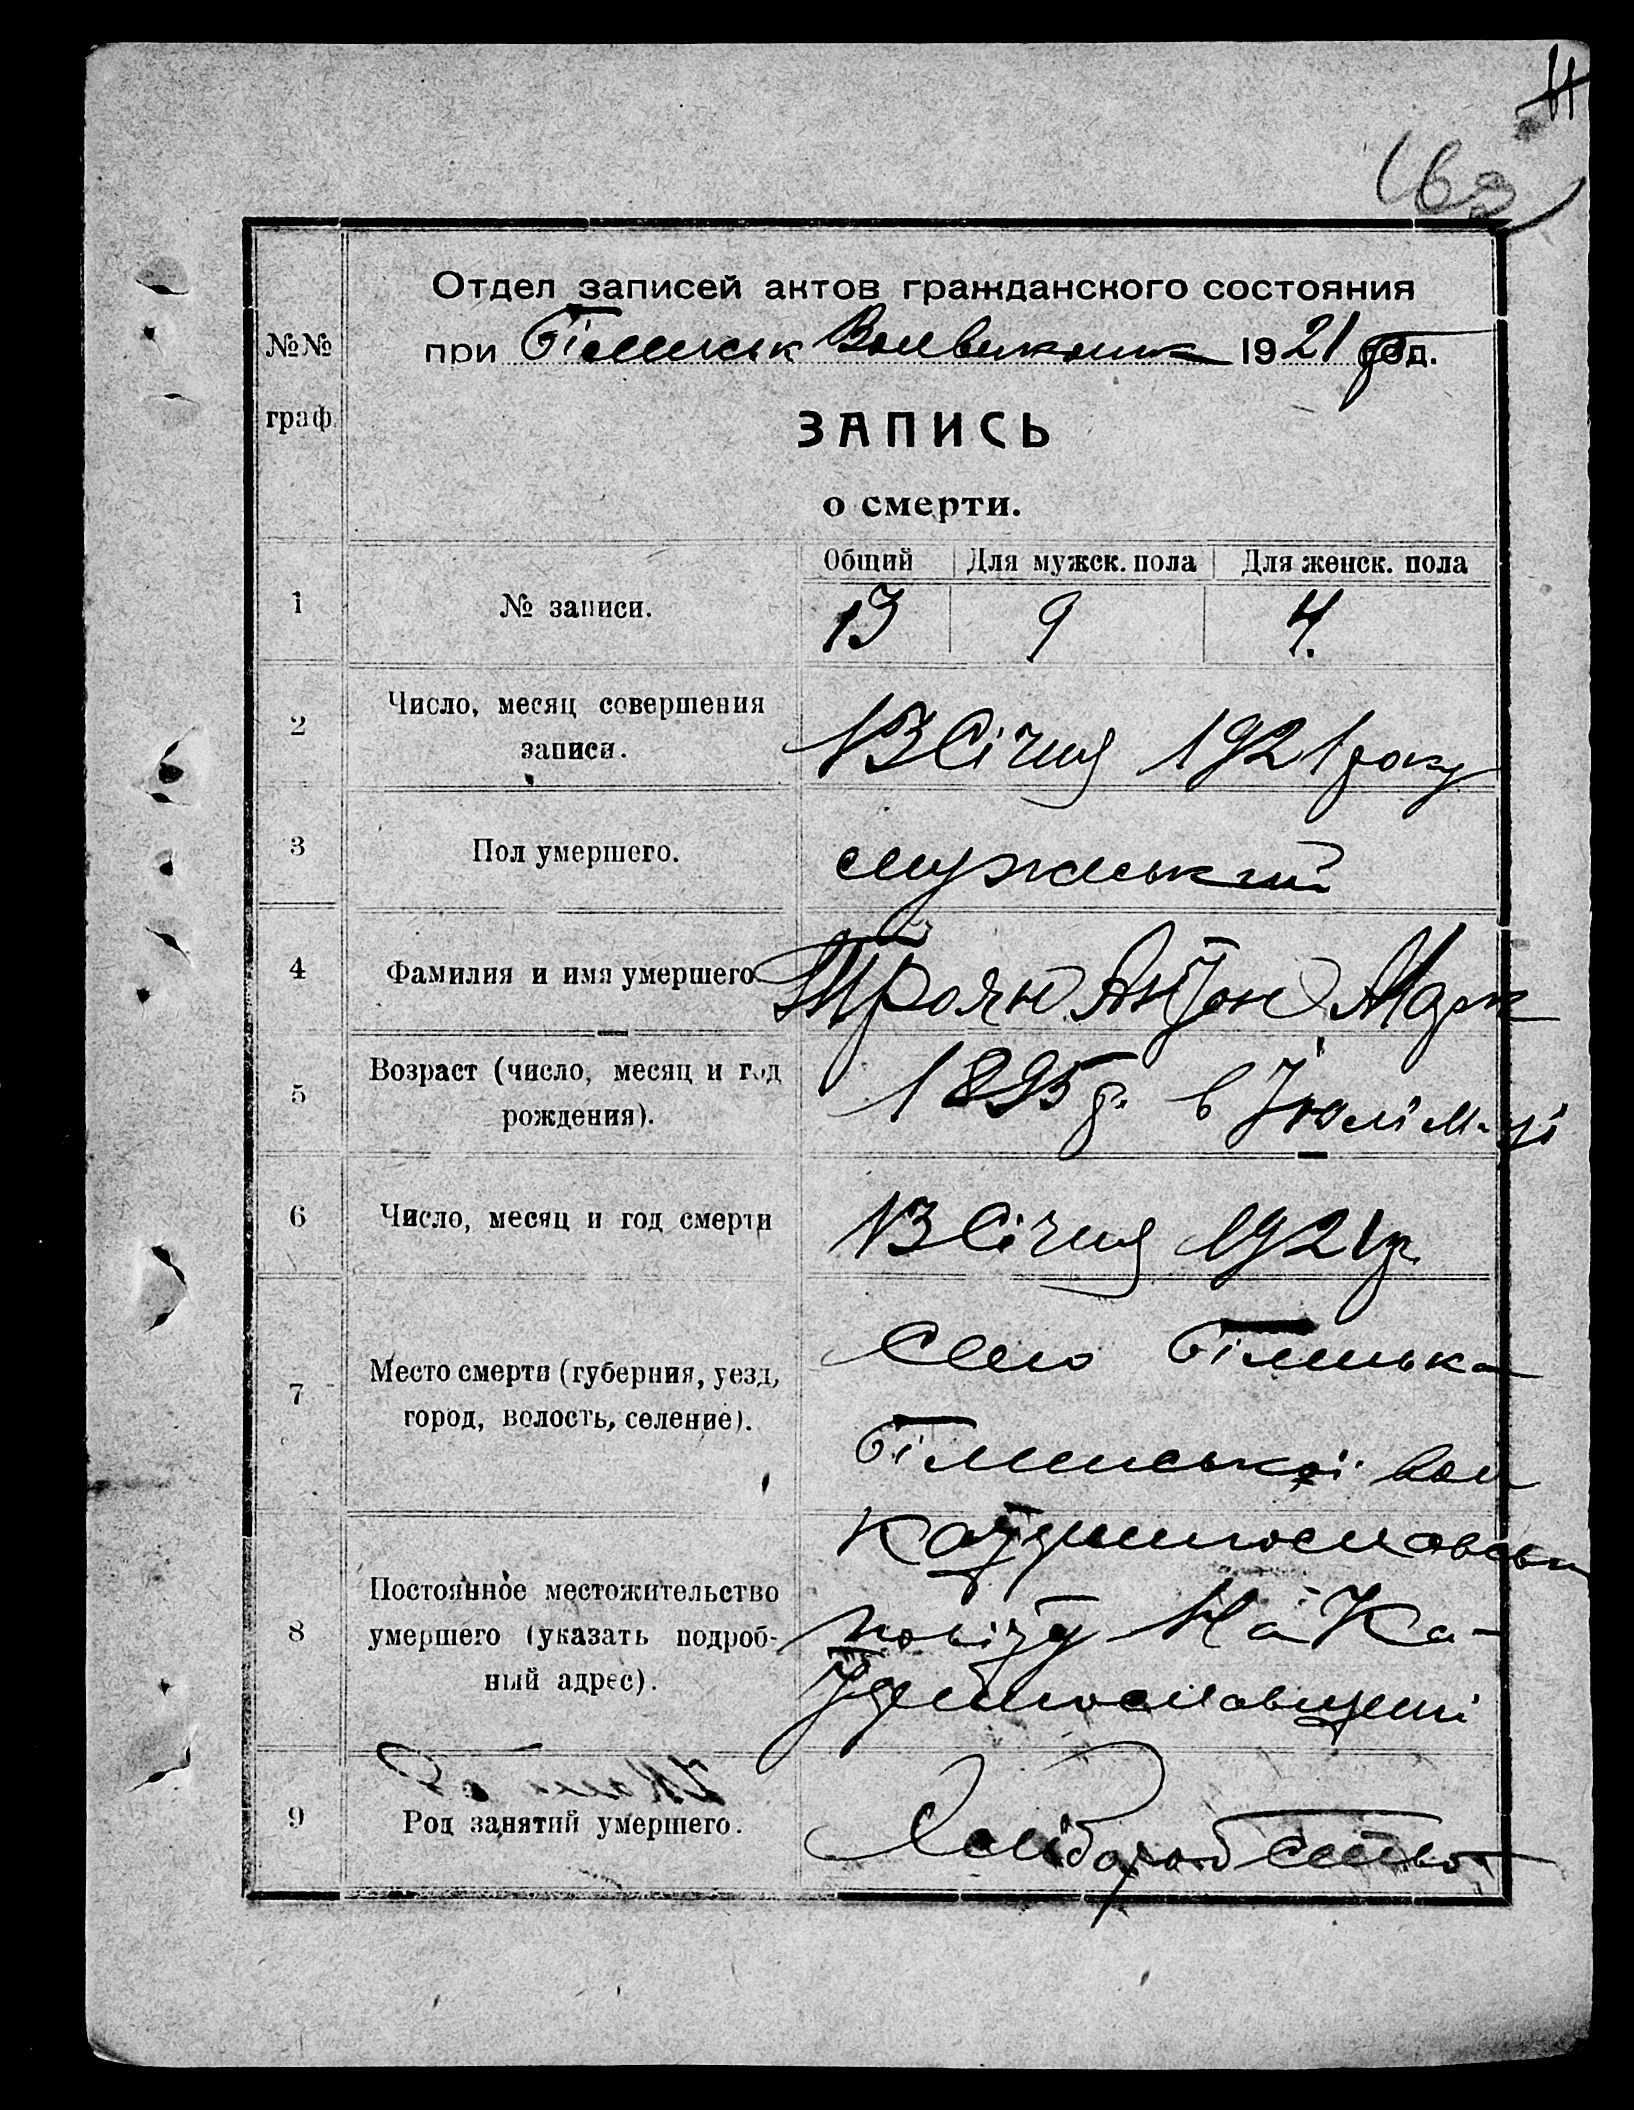 Отдел записей актов гражданского состояния
№№ граф.
при Білинськ Волвиконк 1921 год.
ЗАПИСЬ
о смерти.
Общий Для мужск. пола Для женск. пола
1 № записи. 13 9 4.
2 Число, месяц совершения записи. 13 Січня 1921 року
3 Пол умершего. мужський
4 Фамилия и имя умершего. Троян Антон Марк
5 Возраст (число, месяц и год рождения). 1895 р. в Июлі м-ці
6 Число, месяц и год смерти 13 Січня 1921 р.
7 Место смерти (губерния, уезд, город, волость, селение).
Село
Вол
8 Постоянное местожительство умершего (указать подробный адрес).
повіту На Ка-
9 Род занятий умершего. Хліборобство